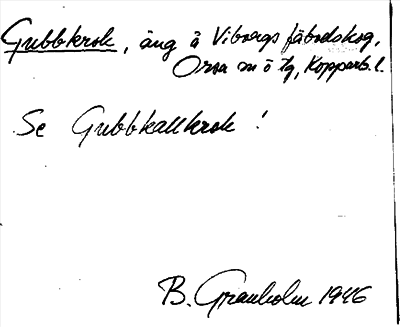 Gubbkrok, äng å Viborgs fäbodskog,
Orsa sn o tg, Kopparb. l.
Se Gubbkallkrok!
B. Granholm 1946